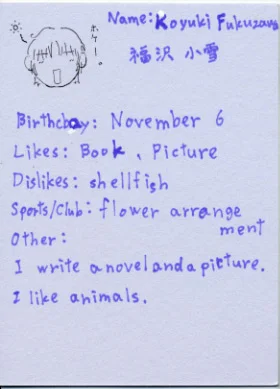 ホケー。
Name: Koyuki Fukuzawa
福沢 小雪
Birthday: November 6
Likes: Book, Picture
Dislikes: shellfish
Sports/Club: flower arrange
ment
Other:
I write a novel and a picture.
I like animals.